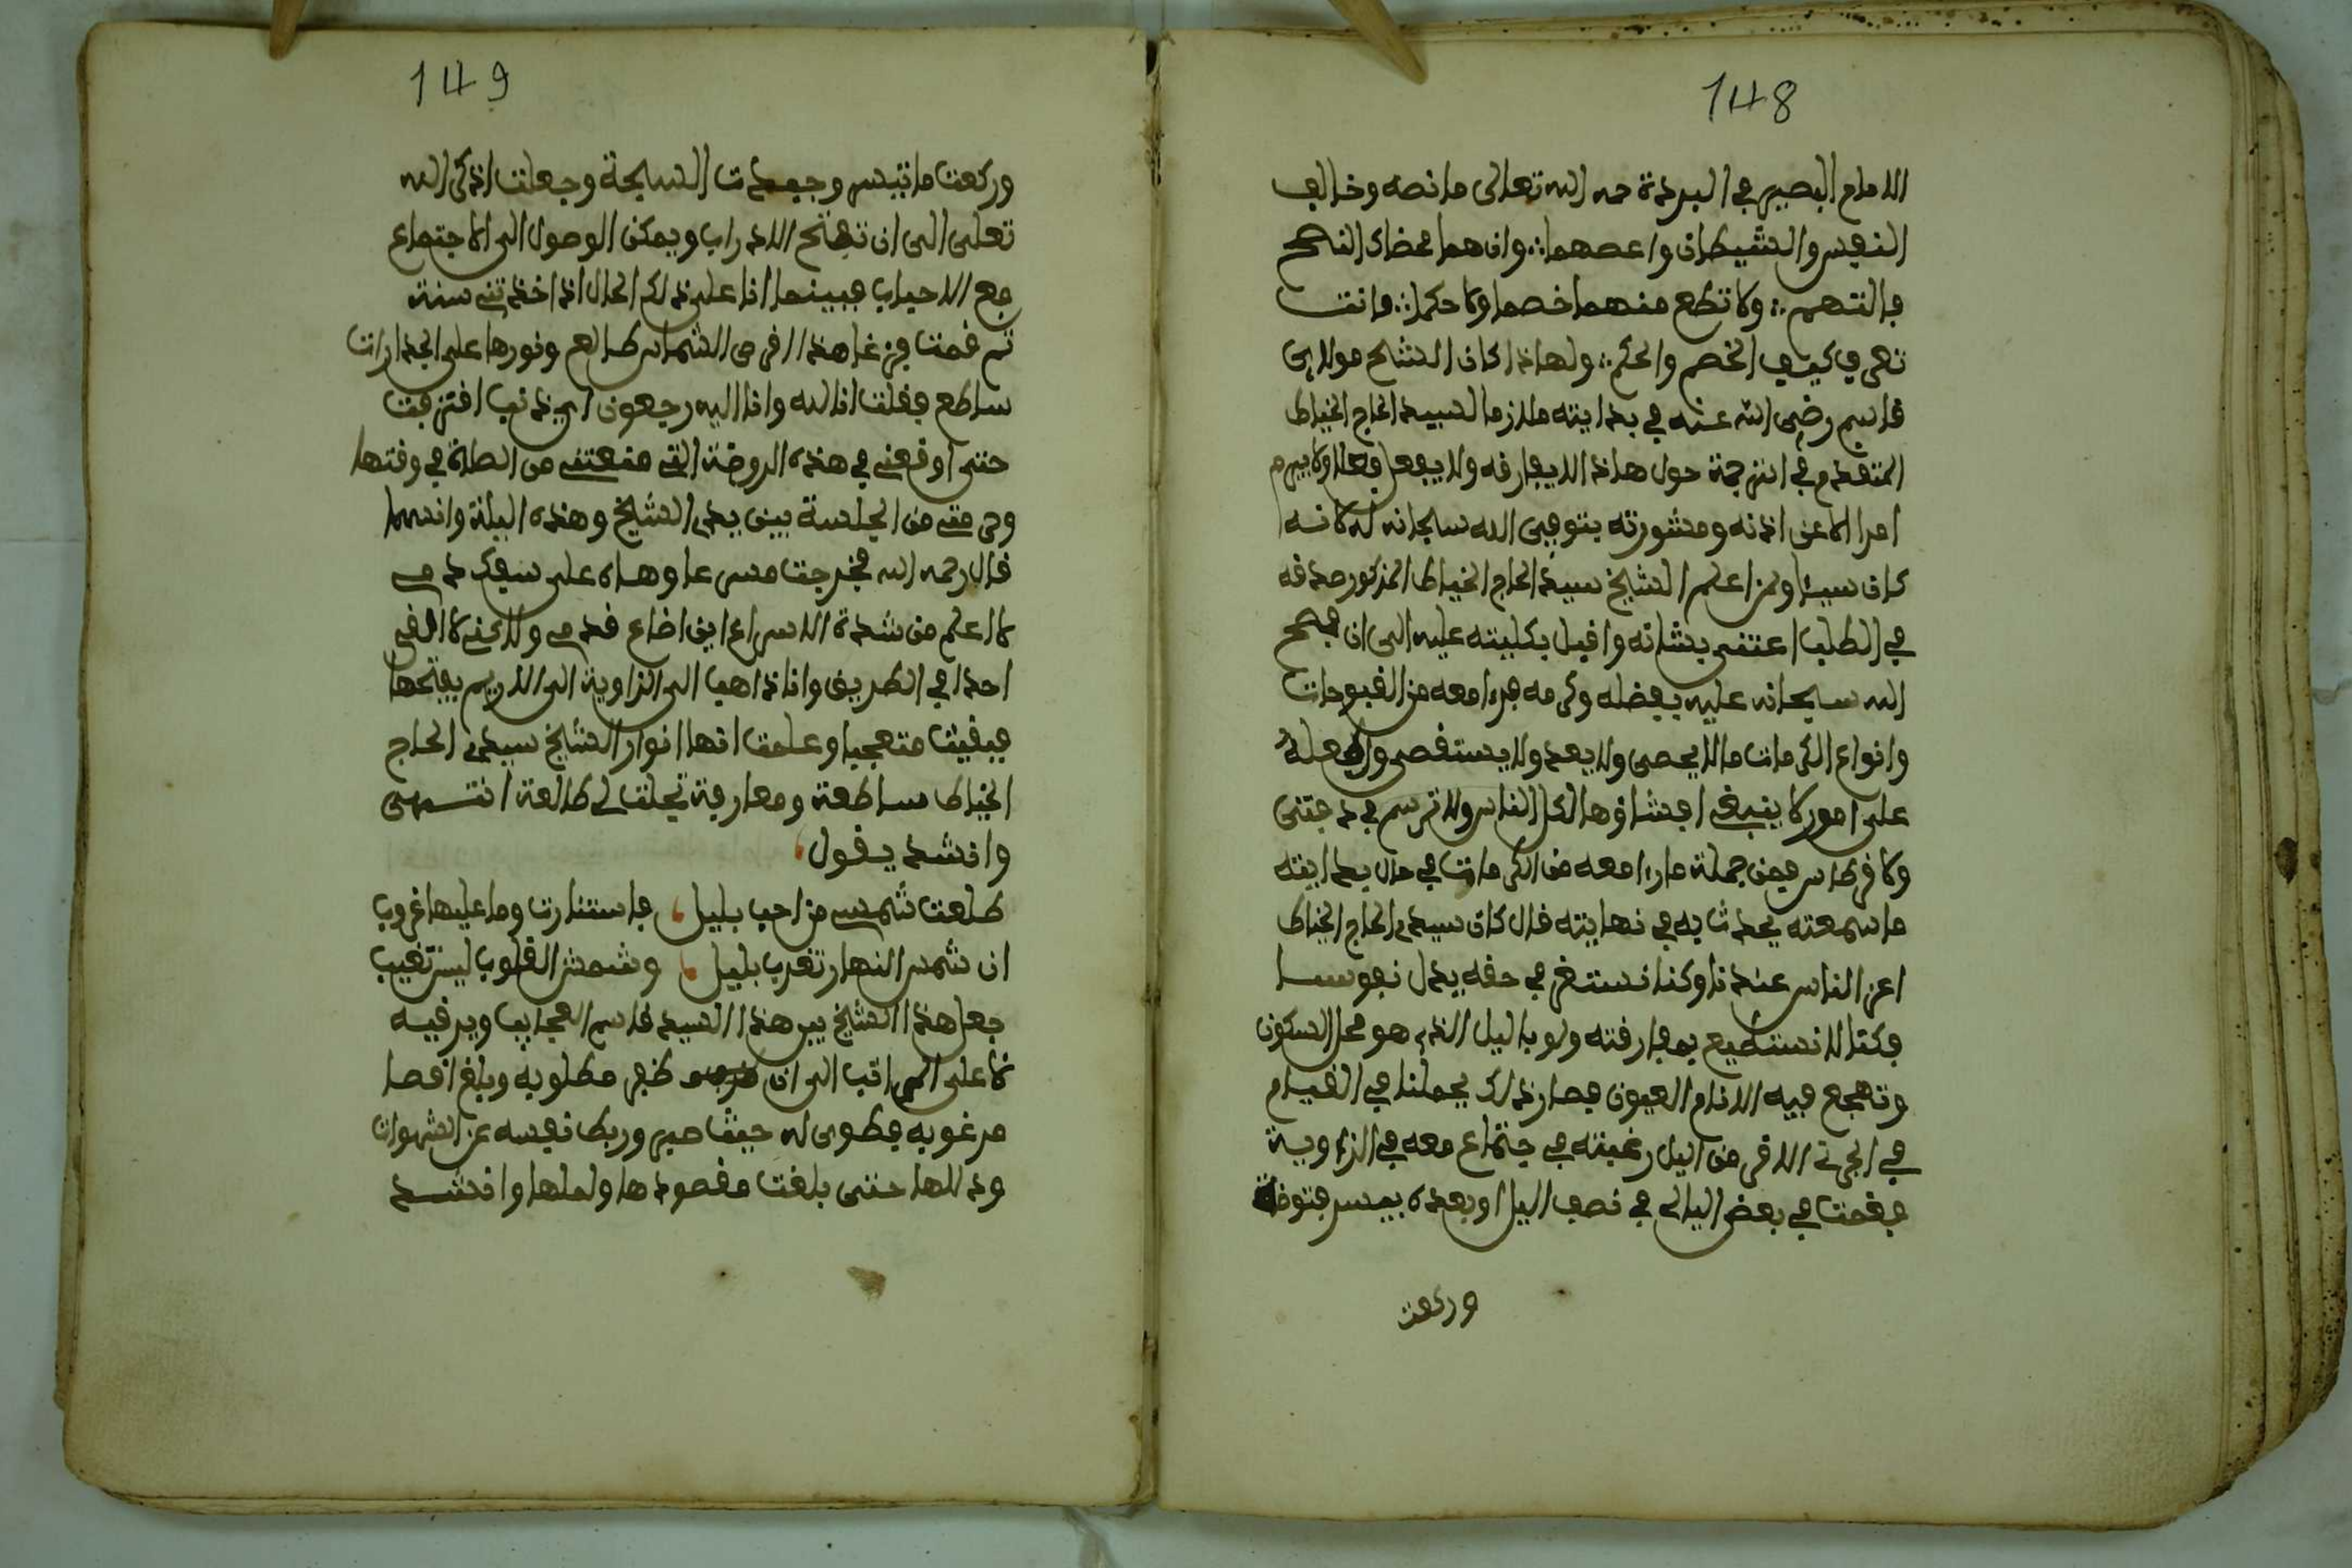 148
الامام البصير في البردة رحمه الله تعالى ما نصه وخالف
النفس والشيطان واعصهما ∴ وان هما محضاك النصح
فاتهم ∴ ولا تطع منهما خصما ولا حكما ∴ فانت
تعرف كيد الخصم والحكم ∴ ولهاذا كان الشيخ مولاي
قاسم رضي الله عنه في بدايته ملازما لسيد الحاج الخياط
المتقدم في الترجمة حول هاذا لا يفارقه ولا يفعل فعلا ولا يبرم
امرا الا عن اذنه ومشورته بتوفيق الله سبحانه له لانه
كان سيدنا الشيخ سيد الحاج الخياط المذكور صدقه
في الطلب اعتنى بشانه واقبل بكليته عليه الى ان فتح
الله سبحانه عليه بفضله وكرمه فرءا معه من الفيوضات
وانواع الكرمات ما لا يحصى ولا يعد ولا يستقصى
على امور لا ينبغي افشاؤها لكل الناس ولا ترسم في دفتى
ولا قرطاس فمن جملة ما رءا معه من الكرمات في حال بدايته
ما سمعته يحدث به في نهايته قال كان سيدي الحاج الخياط
اعز الناس عندنا وكنا نستغرق في حقه بدل نفوسنا
فكنا لا نستطيع بمفارقته ولو باليل الذي هو محل السكون
وتهجع فيه الانام العيون فصار ذلك يحملنا في القيام
في الجزء الاقر من اليل رغبته في جتماع معه في الزاوية
فقمت في بعض الليالي في نصف اليل او بعده بيسر فتوضات
وركعت
149
وركعت ما تيسر وجبدت السبحة وجعلت اذكر الله
تعلى الى ان تفتح الابواب ويمكن الوصول الى الاجتماع
مع الاحباب فبينما انا على ذلك الحال اذ اخذتني سنة
ثم قمت فزعا هذا قرص الشمس طالع ونورها على الجدارات
ساطع فقلت انا لله وانا اليه رجعون اي ذنب اقترفت
حتى اوقعني في هذه الروضة التي منعتني من الصلاة في وقتها
وحرمتني من الجلسة بين يدي الشيخ وهذه اليلة وانسها
قال رحمه الله فخرجت مسرعا وهاه على
لا اعلم من شدة الاسراع اين اضاع قدمي ولا كني لا الفي
احدا في الطريق وانا ذاهب الى الزاوية الى لم يفتحها
فبقيت متعجبا وعلمت انها انوار الشيخ سيدي الحاج
الخياط ساطعة ومعارفة تجلت لي طالعة انتهى
وانشد يقول
طلعت شمس من احب بليل فاستنارت وما عليها غروب
ان شمس النهار تغرب بليل وشمش القلوب ليس تغيب
جعل هذا الشيخ يبر هذا السيد قاسم العجايب ويرقيه
لاعلى المراقب الى ان ظفر مطلوبه وبلغ اقصا
مرغوبه فطوى له حيث صبر وربط نفسه عن الشهوات
وذللها حتى بلغت مقصودها واملها وانشد